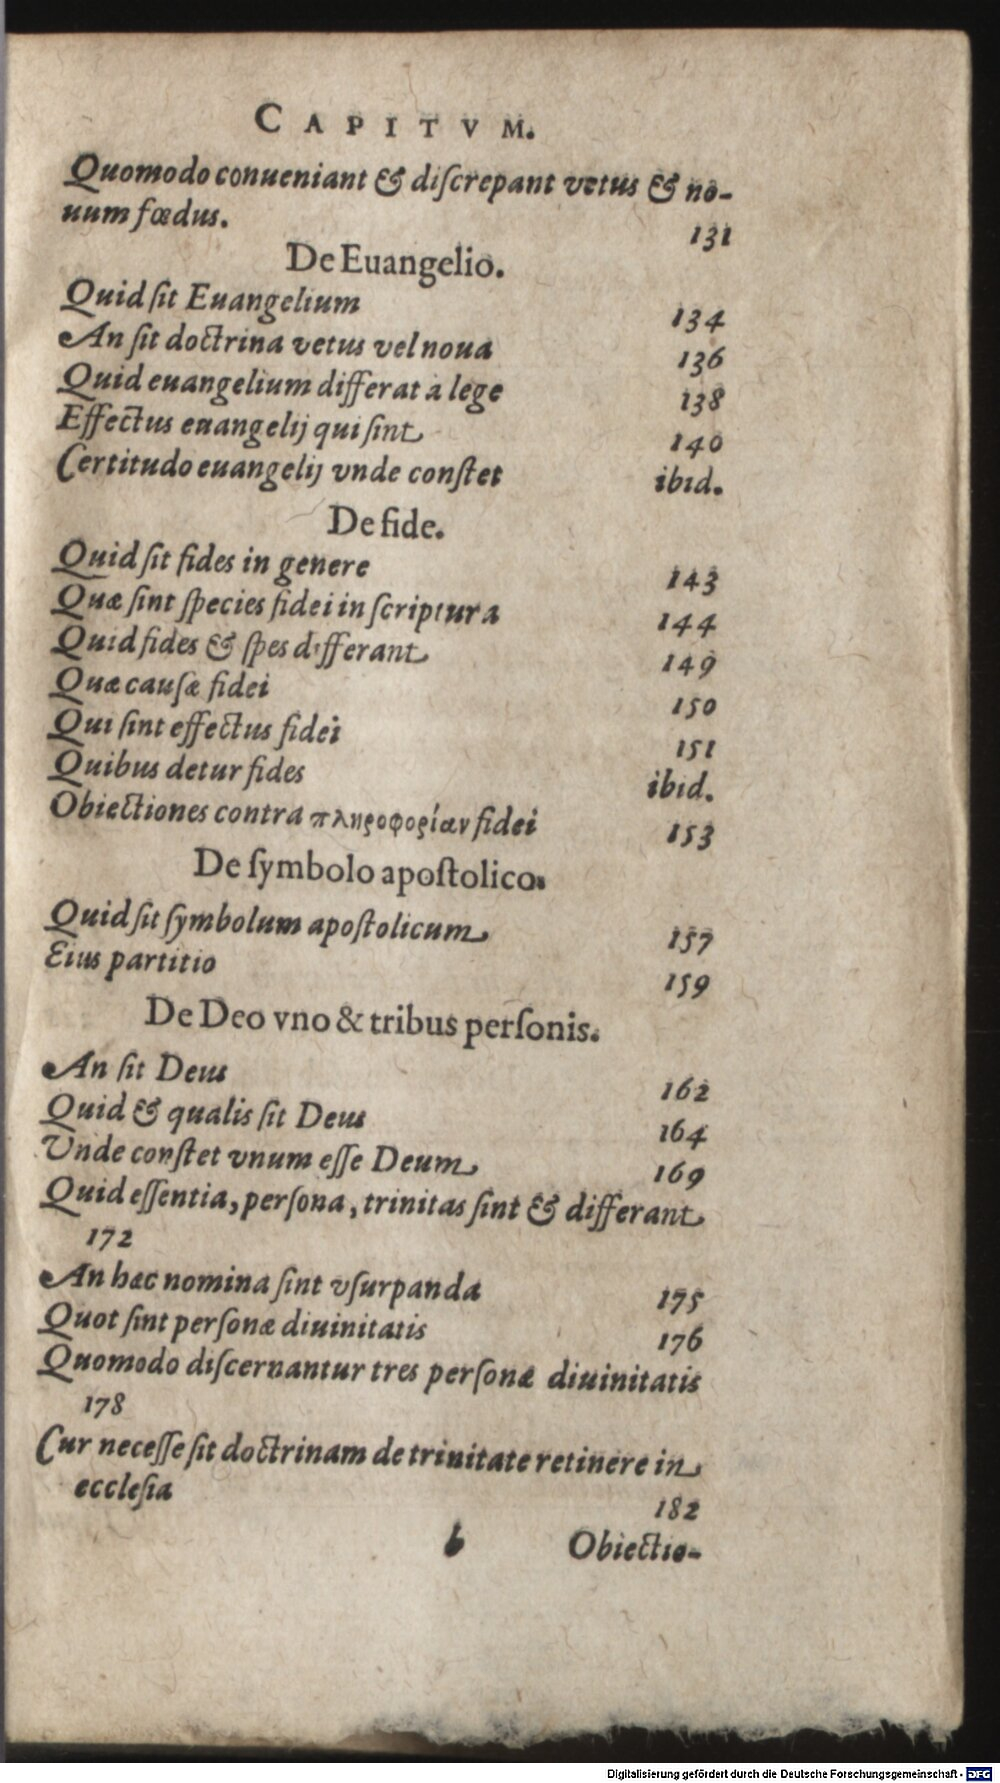 CAPITVM.
Quomodo conueniant & diſcrepant vetus & no-
uum fœdus. 131
De Euangelio.
Quid ſit Euangelium 134
An ſit doctrina vetus vel noua 136
Quid euangelium differat a lege 138
Effectus euangelij qui ſint 140
Certitudo euangelij vnde conſtet ibid.
De fide.
Quid ſit fides in genere 143
Quæ ſint ſpecies fidei in ſcriptura 144
Quid fides & ſpes differant 149
Quæ cauſæ fidei 150
Qui ſint effectus fidei 151
Quibus detur fides ibid.
Obiectiones contra πληροφορίαν fidei 153
De ſymbolo apoſtolico.
Quid ſit ſymbolum apoſtolicum 157
Eius partitio 159
De Deo vno & tribus perſonis.
An ſit Deus 162
Quid & qualis ſit Deus 164
Vnde conſtet vnum eſſe Deum 169
Quid eſſentia, perſona, trinitas ſint & differant
172
An hæc nomina ſint vſurpanda 175
Quot ſint perſonæ diuinitatis 176
Quomodo diſcernantur tres perſonæ diuinitatis
178
Cur neceſſe ſit doctrinam de trinitate retinere in
eccleſia 182
b Obiectio-
Digitalisierung gefördert durch die Deutsche Forschungsgemeinschaft - DFG